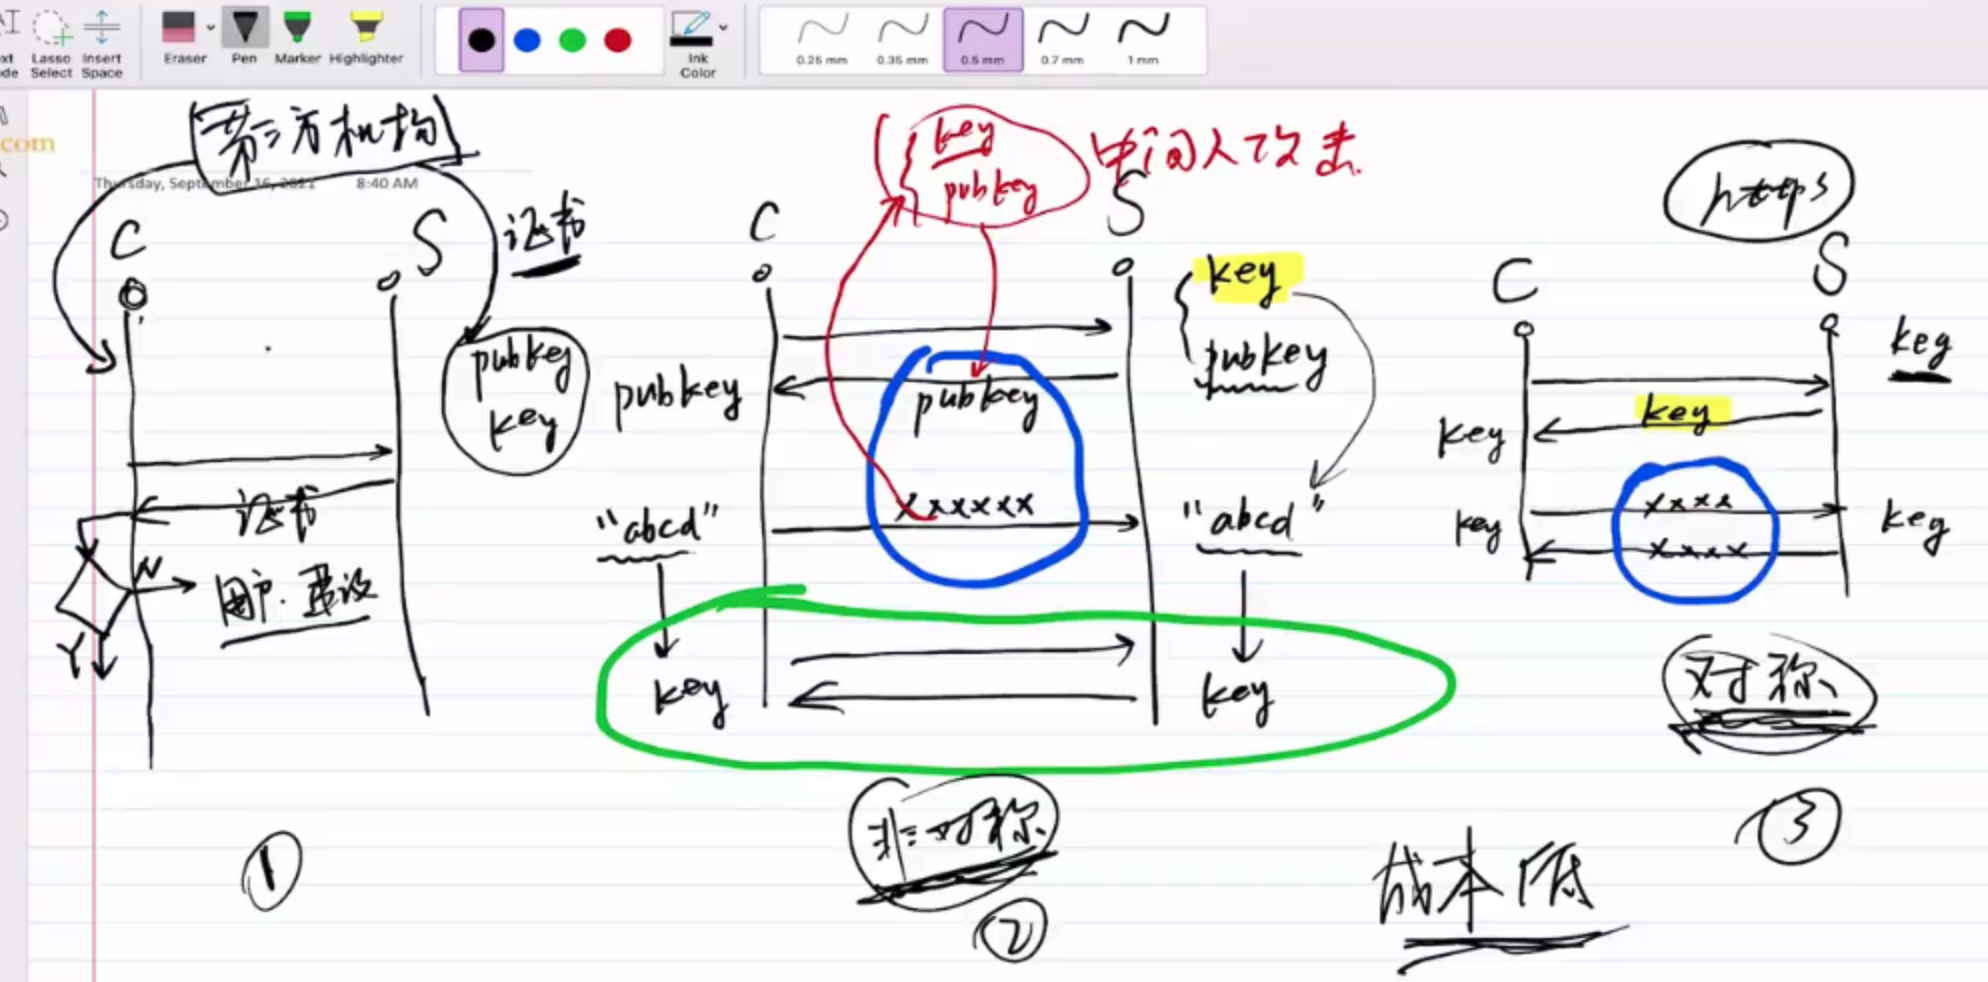 Lasso Select
Insert Space
Eraser
Pen
Marker
Highlighter
Ink Color
0.25 mm
0.35 mm
0.5 mm
0.7 mm
1 mm
com
第三方机构
Thursday, September 16, 2021
8:40 AM
C
S
证书
pubkey
key
证书
N
用户.
Y
①
key
pubkey
中间人攻击.
C
S
key
pubkey
pubkey
pubkey
"abcd"
xxxxxx
"abcd"
key
key
非对称
②
https
C
S
key
key
key
key
xxxx
key
xxxx
对称
③
成本低